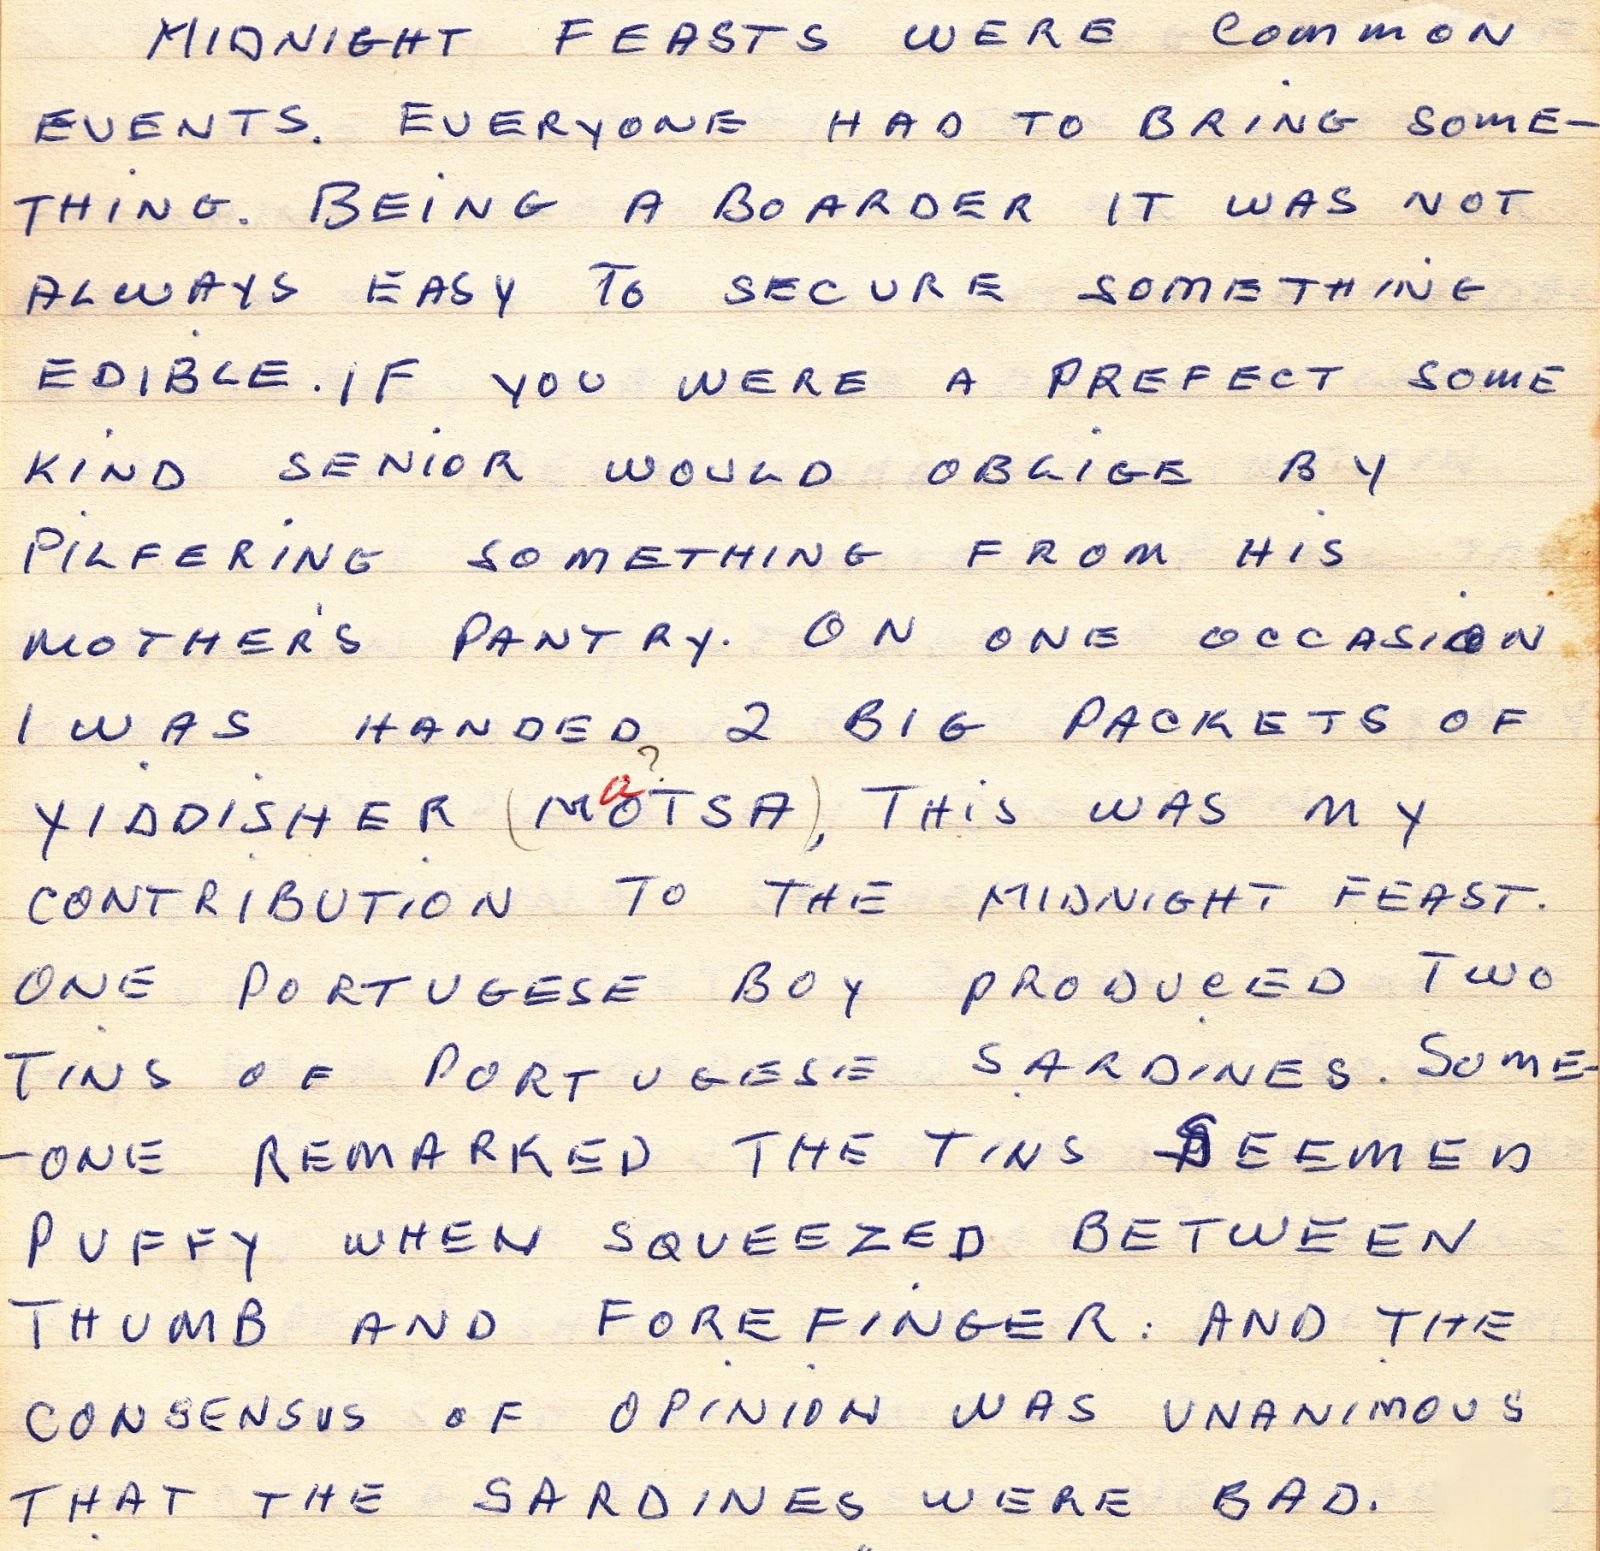 MIDNIGHT FEASTS WERE COMMON
EVENTS. EVERYONE HAD TO BRING SOME-
THING. BEING A BOARDER IT WAS NOT
ALWAYS EASY TO SECURE SOMETHING
EDIBLE. IF YOU WERE A PREFECT SOME
KIND SENIOR WOULD OBLIGE BY
PILFERING SOMETHING FROM HIS
MOTHER'S PANTRY. ON ONE OCCASION
I WAS HANDED 2 BIG PACKETS OF
a ?
YIDDISHER (MOTSA), THIS WAS MY
CONTRIBUTION TO THE MIDNIGHT FEAST.
ONE PORTUGESE BOY PRODUCED TWO
TINS OF PORTUGESE SARDINES. SOME-
-ONE REMARKED THE TINS SEEMED
PUFFY WHEN SQUEEZED BETWEEN
THUMB AND FOREFINGER: AND THE
CONSENSUS OF OPINION WAS UNANIMOUS
THAT THE SARDINES WERE BAD.